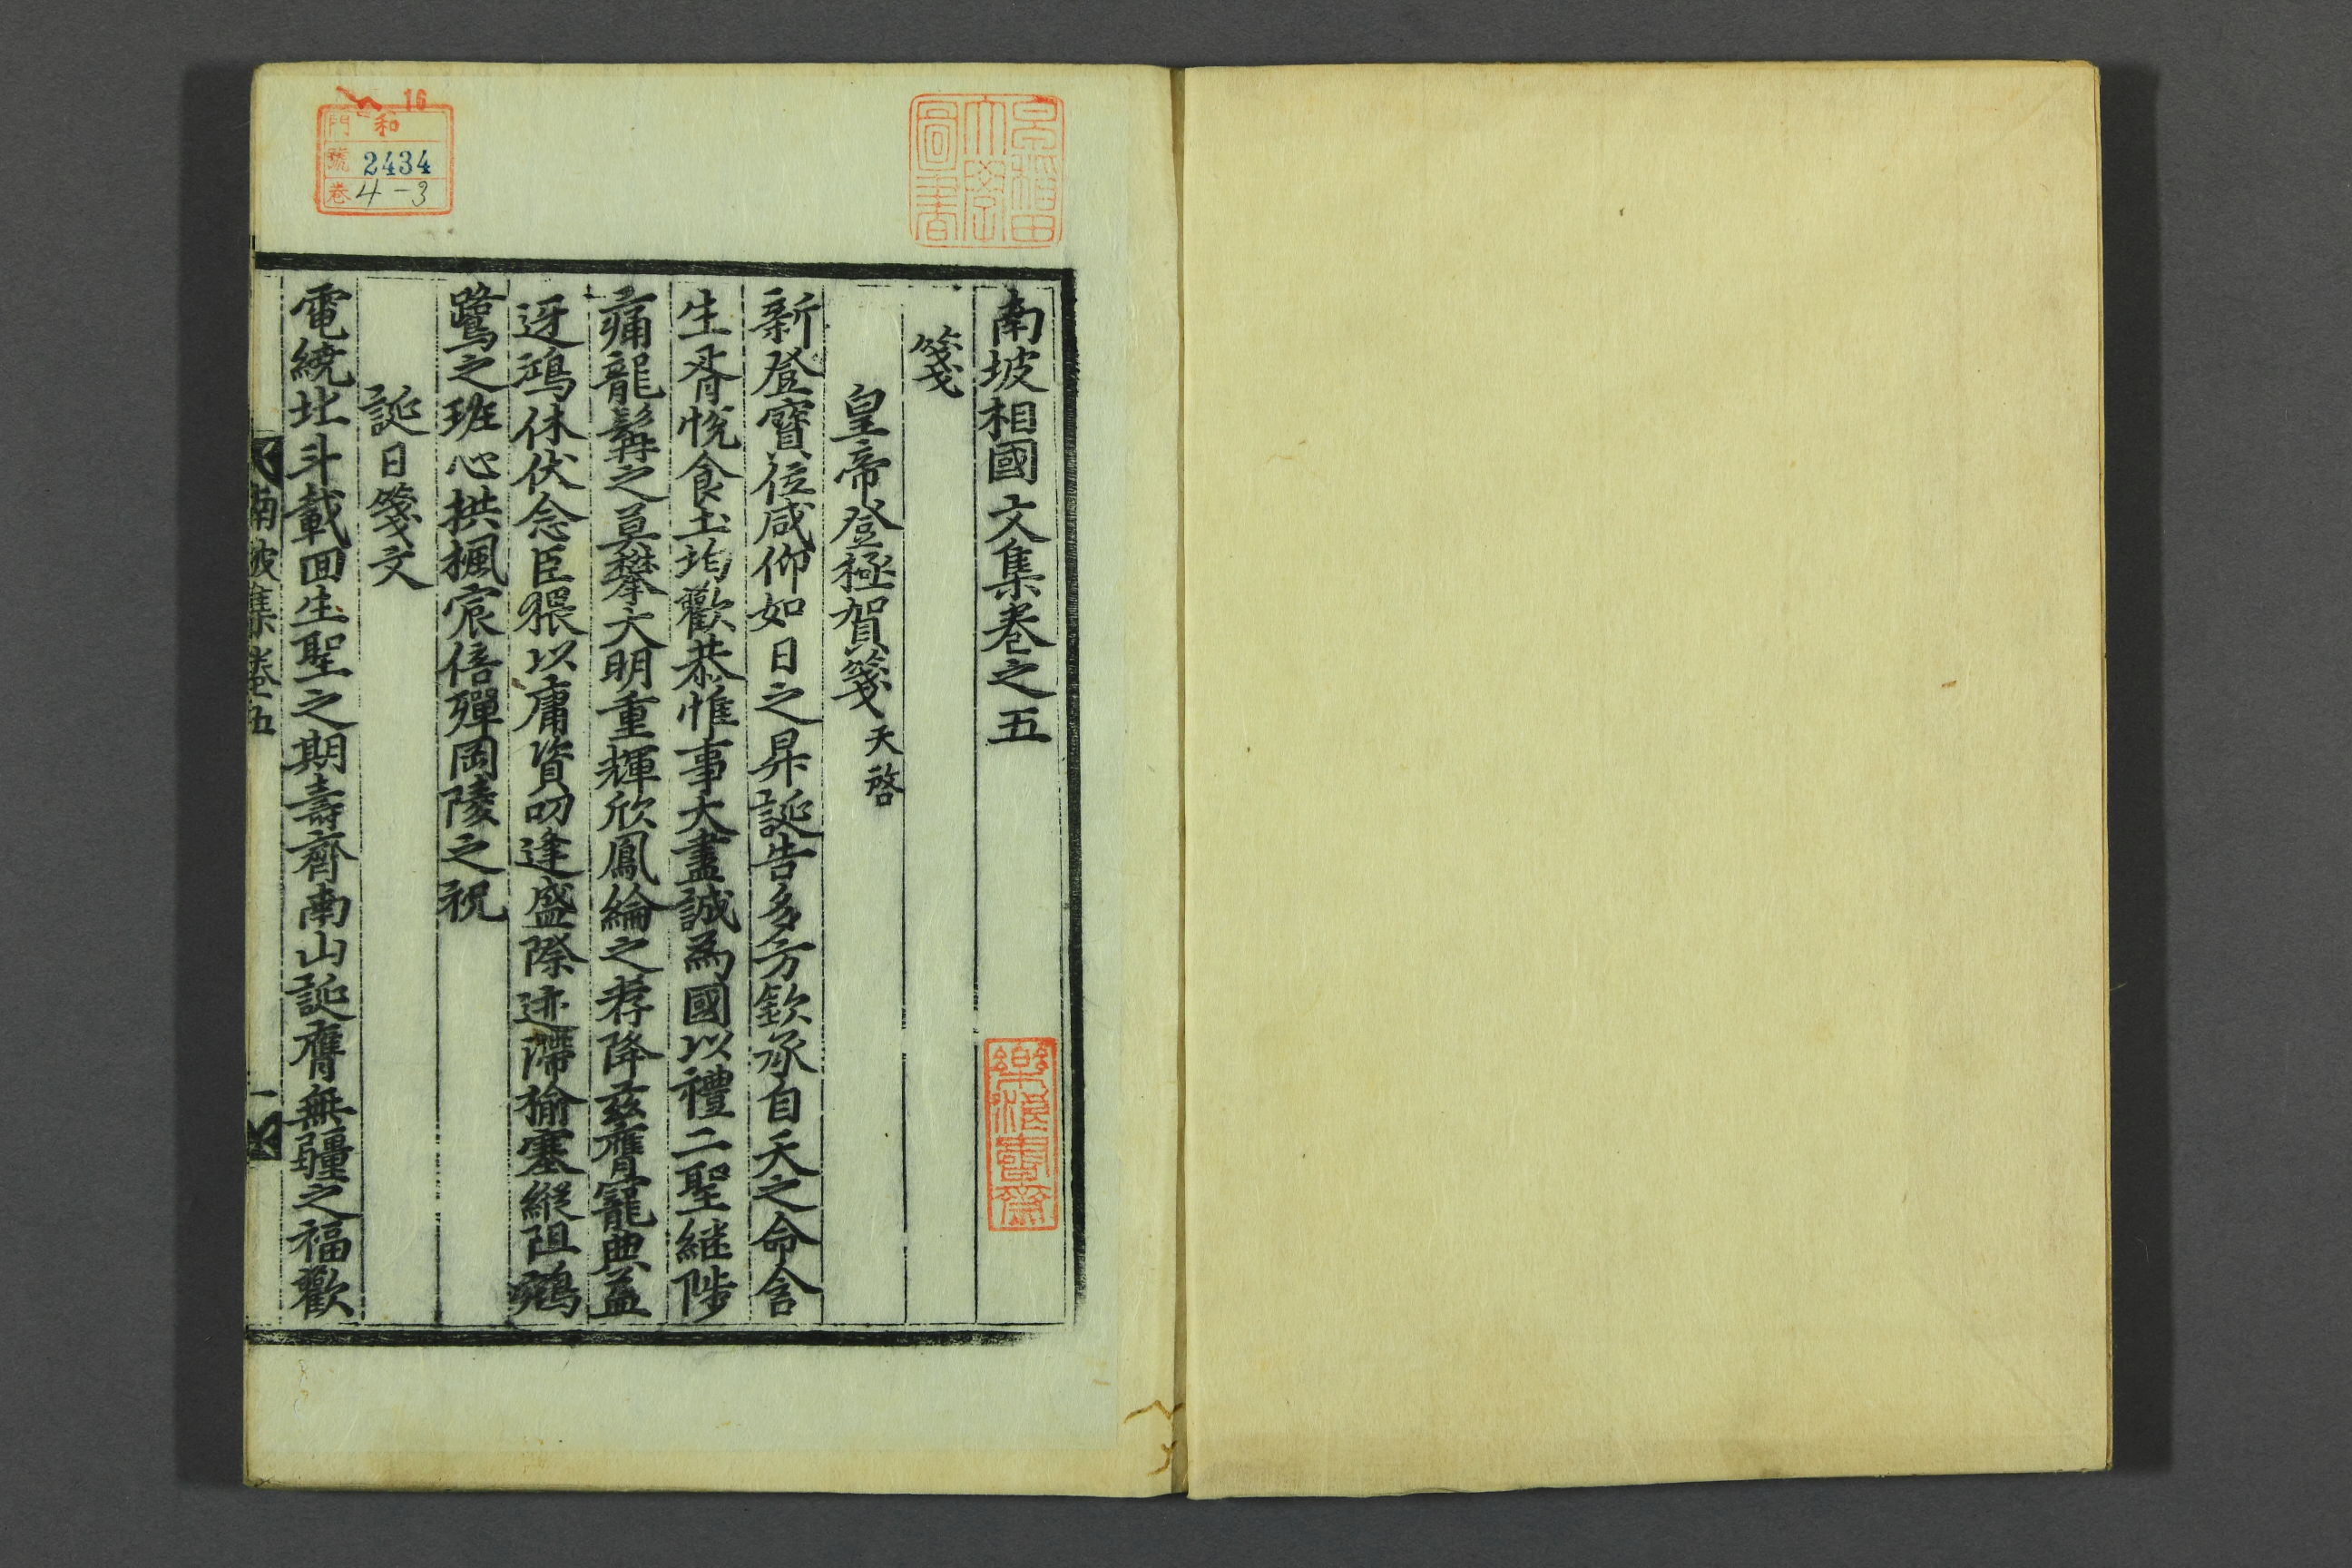 南坡相國文集卷之五
箋
皇帝登極賀箋天啓
新登寶位咸仰如日之昇誕告多方欽承自天之命含
生胥悅食土均歡恭惟事大盡誠為國以禮二聖繼陟
痛龍髯之莫攀大明重輝欣鳳綸之荐降茲膺寵典益
迓鴻休伏念臣猥以庸資叨逢盛際迹滯楡塞縱阻鵷
鷺之班心拱楓宸倍殫岡陵之祝
誕日箋文
電繞北斗載回生聖之期壽齊南山誕膺無疆之福歡
南坡集卷五 一
早稻田大學圖書
樂浪書齋
16
門 和
號 2434
卷 4-3